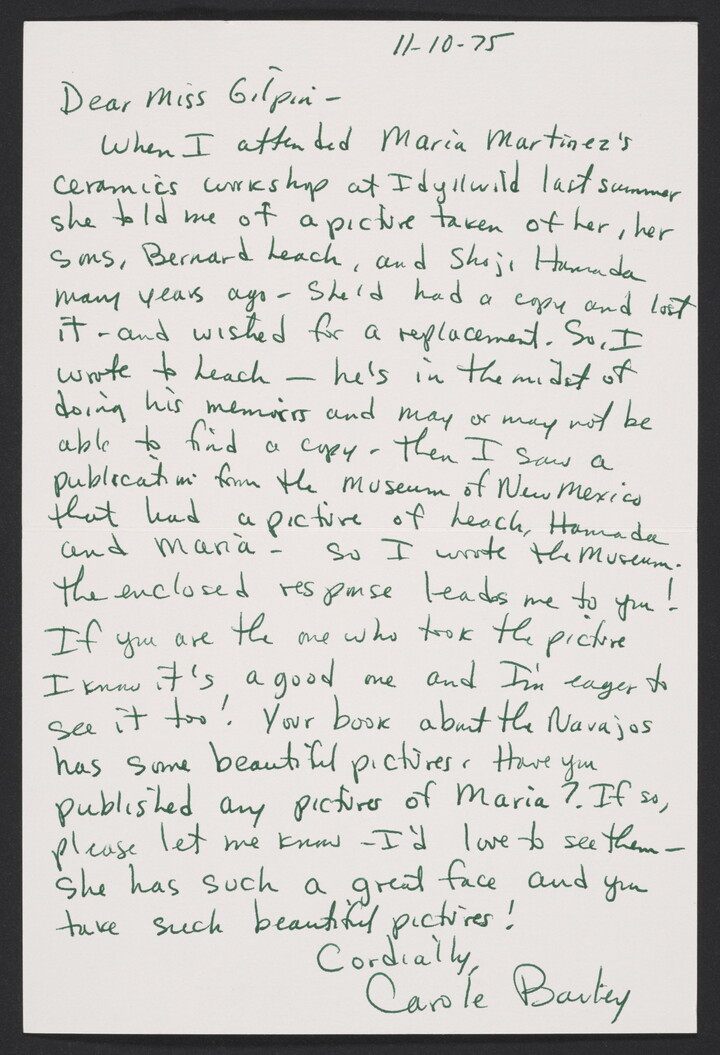 11-10-75
Dear Miss Gilpin -
When I attended Maria Martinez's
ceramics workshop at Idyllwild last summer
she told me of a picture taken of her, her
sons, Bernard Leach, and Shoji Hamada
many years ago - She'd had a copy and lost
it - and wished for a replacement. So, I
wrote to Leach - he's in the midst of
doing his memoirs and may or may not be
able to find a copy - then I saw a
publication from the Museum of New Mexico
that had a picture of Leach, Hamada
and Maria - so I wrote the Museum.
The enclosed response leads me to you!
If you are the one who took the picture
I know it's a good one and I'm eager to
see it too! Your book about the Navajos
has some beautiful pictures. Have you
published any pictures of Maria? If so,
please let me know - I'd love to see them -
She has such a great face and you
take such beautiful pictures!
Cordially,
Carole